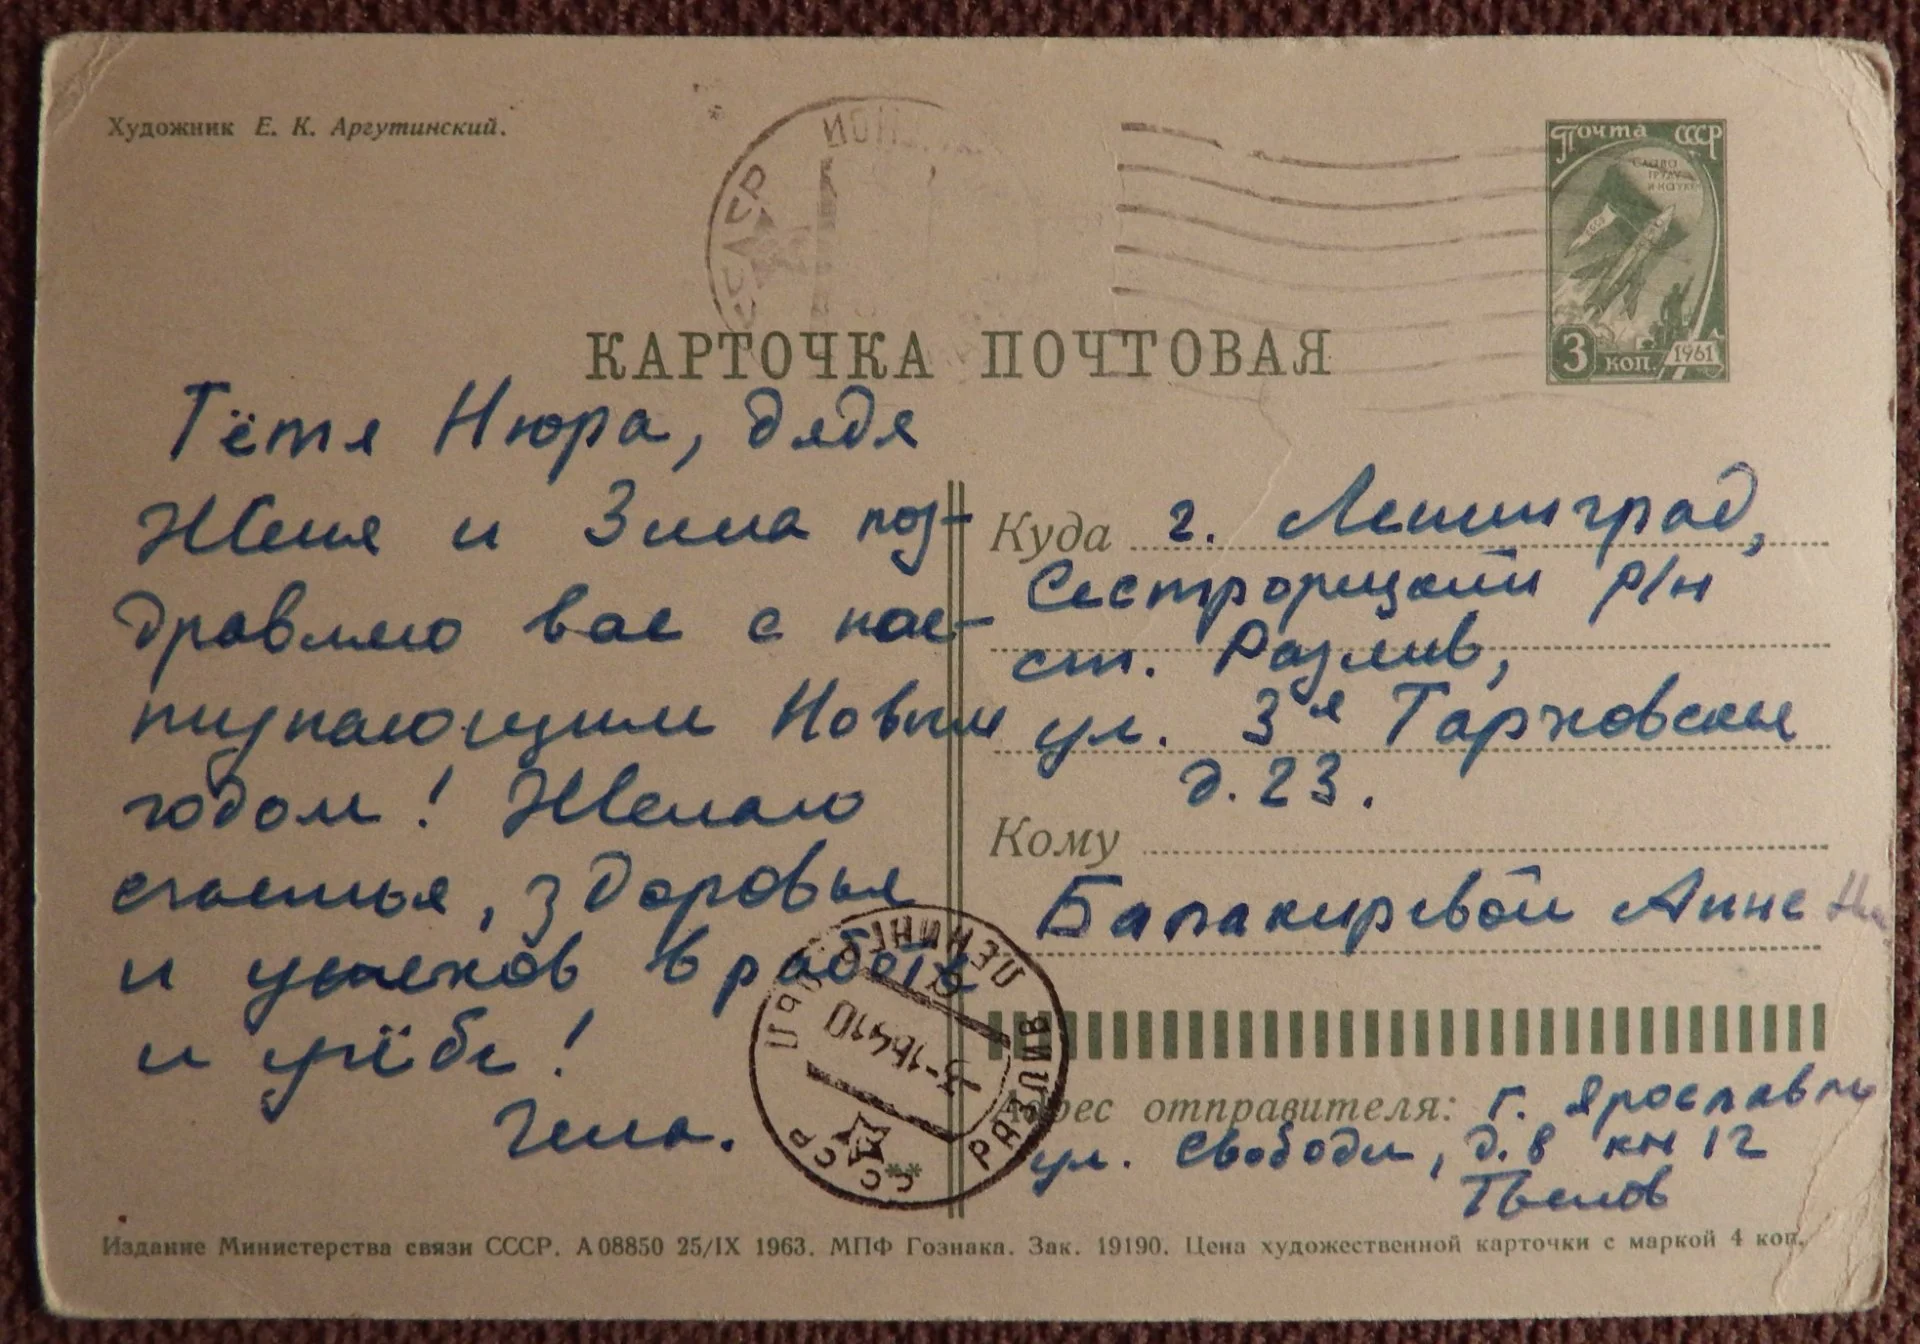 Художник Е. К. Аргутинский.
Почта СССР
СЛАВА
ТРУДУ
И НАУКЕ
3 коп. 1961
КАРТОЧКА ПОЧТОВАЯ
Тётя Нюра, дядя
Женя и Зина поз-
дравляю вас с нас-
тупающим Новым
годом! Желаю
счастья, здоровья
и успехов в работе
и учёбе!
Гена.
Куда г. Ленинград,
Сестрорецкий р/н
ст. Разлив,
ул. 3я Тарховская
д. 23.
Кому
Балакиревой Анне
ЛЕНИНГР
РАЗЛИВ
СССР
Адрес отправителя: г. Ярославль
ул. Свободы, д. 8 кв 12
Издание Министерства связи СССР. А 08850 25/IX 1963. МПФ Гознака. Зак. 19190. Цена художественной карточки с маркой 4 коп.